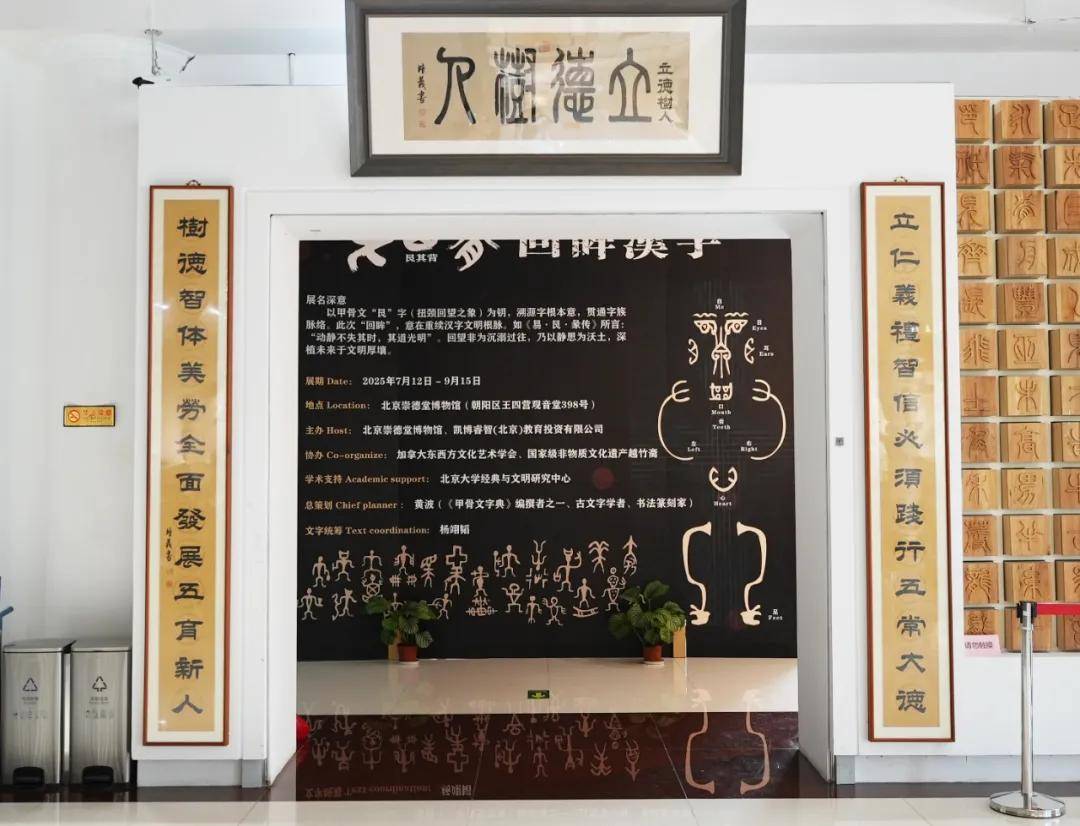 立德樹人
立德樹人
培義書
立仁義禮智信必須踐行五常大德
樹德智体美勞全面發展五育新人
培義書
艮其背
回眸漢字
展名深意
以甲骨文“艮”字（扭颈回望之象）为钥，溯源字根本意，贯通字族
脉络。此次“回眸”，意在重续汉字文明根脉。如《易·艮·彖传》所言：
“动静不失其时，其道光明”。回望非为沉溺过往，乃以静思为沃土，深
植未来于文明厚壤。
展期 Date： 2025年7月12日 - 9月15日
地点 Location： 北京崇德堂博物馆（朝阳区王四营观音堂398号）
主办 Host： 北京崇德堂博物馆、凯博睿智(北京)教育投资有限公司
协办 Co-organize： 加拿大东西方文化艺术学会、国家级非物质文化遗产越竹斋
学术支持 Academic support： 北京大学经典与文明研究中心
总策划 Chief planner： 黄波（《甲骨文字典》编撰者之一、古文字学者、书法篆刻家）
文字统筹 Text coordination： 杨翊韬
自
Me
目
Eyes
耳
Ears
口
Mouth
齿
Teeth
左
Left
右
Right
心
Heart
足
Feet
请勿触摸